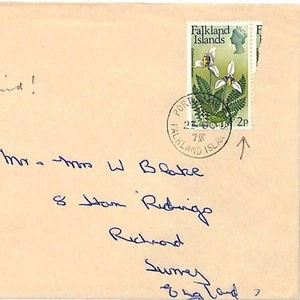 Falkland
Islands
2p
PORT
75
FALKLAND ISLAN
Mr - Mrs W Blake
8 Ham Ridings
Richmond
Surrey
England